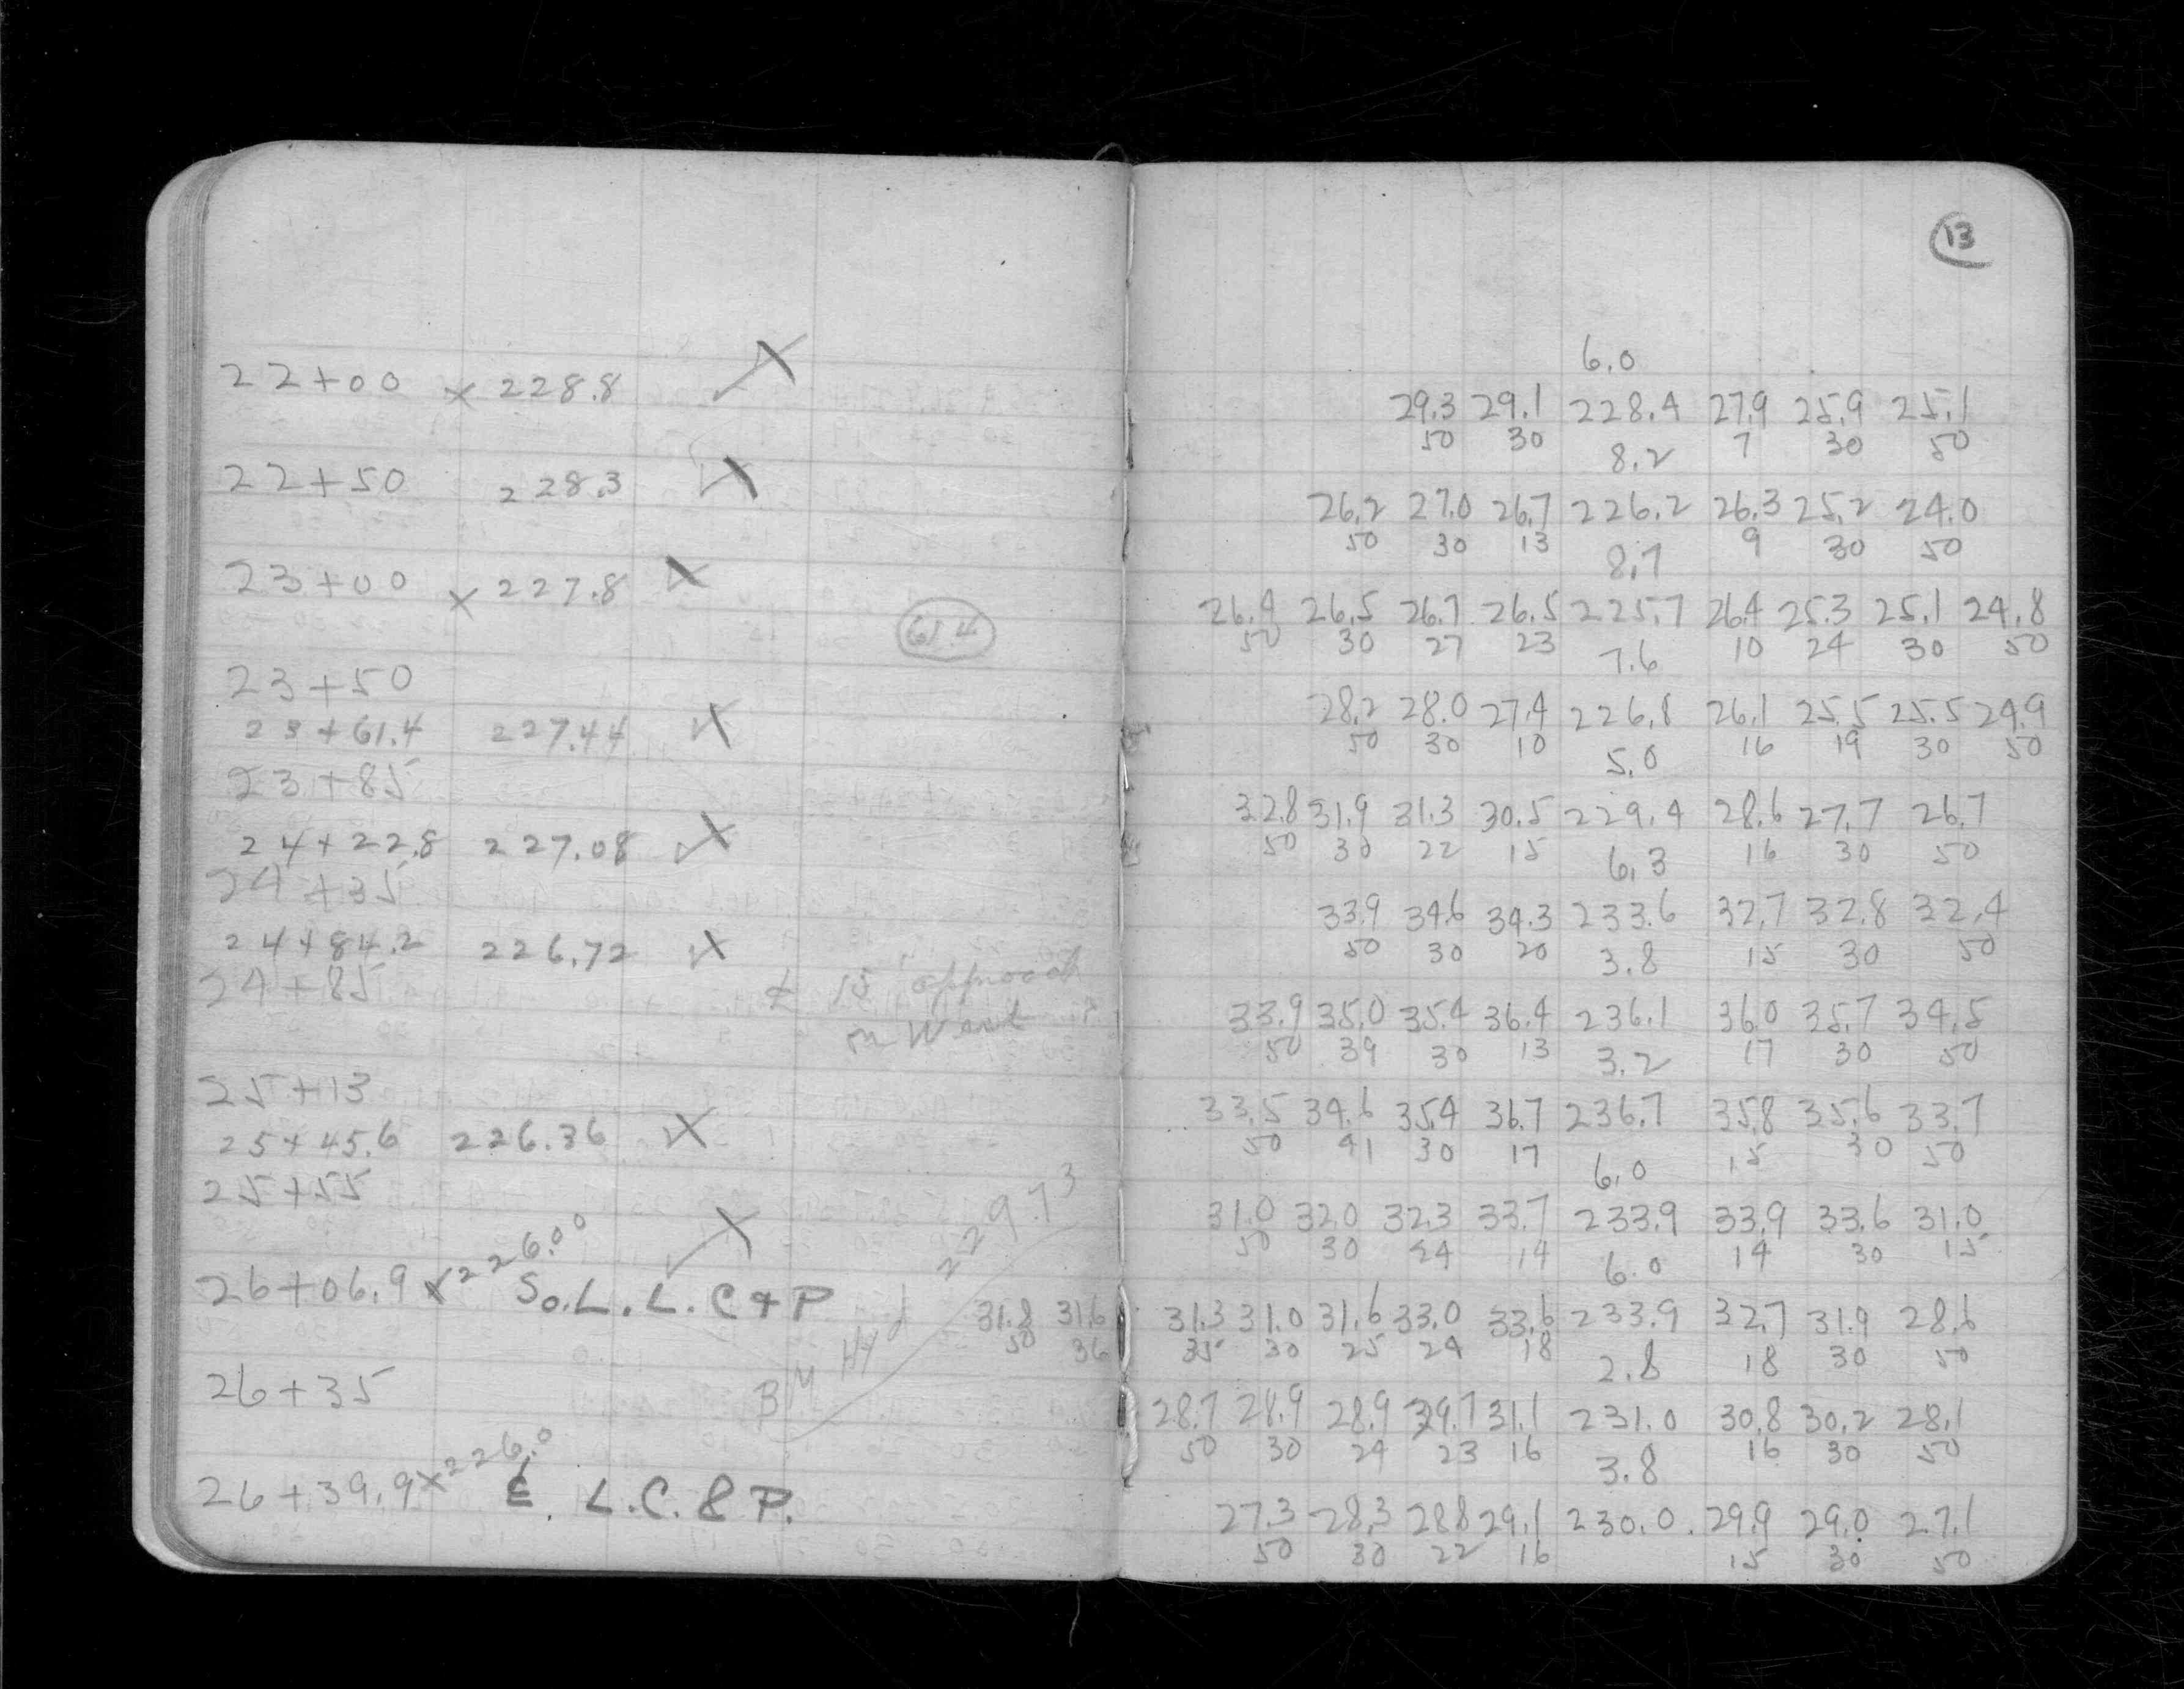 22+00 x 228.8
22+50 228.3
23+00 x 227.8
61.4
23+50
23+61.4 227.44
23+85
24+22.8 227.08
24+35
24+84.2 226.72
24+85
± 15' approach
on West ?
25+13
25+45.6 226.36
25+55
26+06.9 x 226.00 So. L. L. C & P
BM Hyd 229.73
31.8 31.6
50 36
26+35
26+39.9 x 226.0 ⅊. L. C. & P.
13
6.0
29.3 29.1 228.4 27.9 25.9 25.1
50 30 8.2 7 30 50
26.2 27.0 26.7 226.2 26.3 25.2 24.0
50 30 13 8.7 9 30 50
26.4 26.5 26.7 26.5 225.7 26.4 25.3 25.1 24.8
50 30 27 23 7.6 10 24 30 50
28.2 28.0 27.4 226.8 26.1 25.5 25.5 24.9
50 30 10 5.0 16 19 30 50
32.8 31.9 31.3 30.5 229.4 28.6 27.7 26.7
50 30 22 15 6.3 16 30 50
33.9 34.6 34.3 233.6 32.7 32.8 32.4
50 30 20 3.8 15 30 50
33.9 35.0 35.4 36.4 236.1 36.0 35.7 34.5
50 39 30 13 3.2 17 30 50
33.5 34.6 35.4 36.7 236.7 35.8 35.6 33.7
50 41 30 17 6.0 15 30 50
31.0 32.0 32.3 33.7 233.9 33.9 33.6 31.0
50 30 24 14 6.0 14 30 15
31.3 31.0 31.6 33.0 33.6 233.9 32.7 31.9 28.6
35 30 25 24 18 2.8 18 30 50
28.7 28.9 28.9 29.7 31.1 231.0 30.8 30.2 28.1
50 30 24 23 16 3.8 16 30 50
27.3 28.3 28.8 29.1 230.0 29.9 29.0 27.1
50 30 22 16 15 30 50